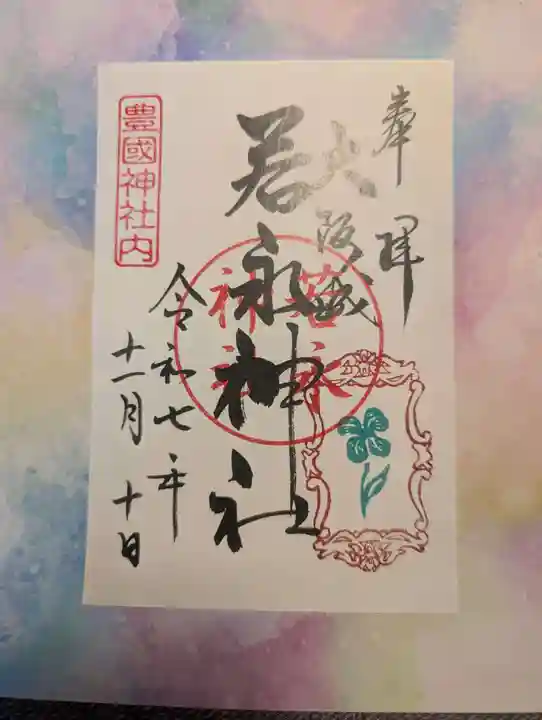 奉拝
大阪城
若永神社
若永
神社
令和七年
十一月十日
豊國神社内